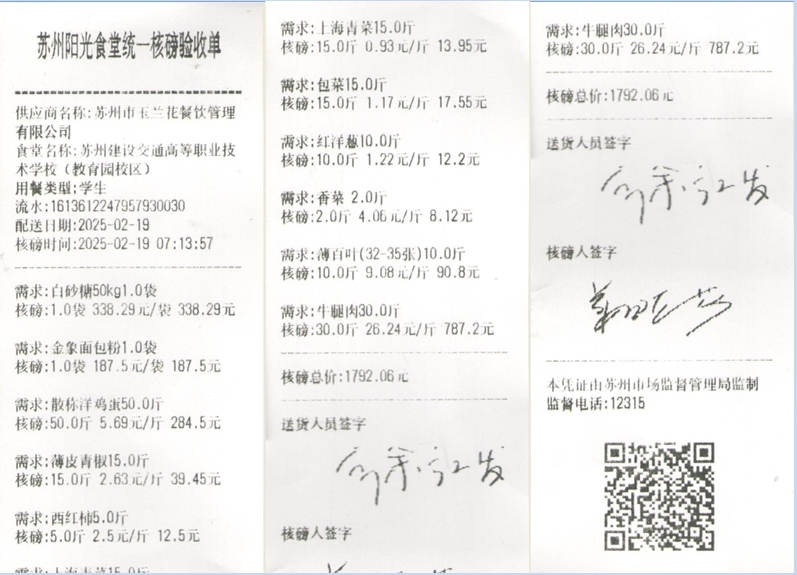 苏州阳光食堂统一核磅验收单
供应商名称:苏州市玉兰花餐饮管理
有限公司
食堂名称:苏州建设交通高等职业技
术学校（教育园校区）
用餐类型:学生
流水:1613612247957930030
配送日期:2025-02-19
核磅时间:2025-02-19 07:13:57
需求:白砂糖50kg1.0袋
核磅:1.0袋 338.29元/袋 338.29元
需求:金象面包粉1.0袋
核磅:1.0袋 187.5元/袋 187.5元
需求:散称洋鸡蛋50.0斤
核磅:50.0斤 5.69元/斤 284.5元
需求:薄皮青椒15.0斤
核磅:15.0斤 2.63元/斤 39.45元
需求:西红柿5.0斤
核磅:5.0斤 2.5元/斤 12.5元
需求:上海青菜15.0斤
需求:上海青菜15.0斤
核磅:15.0斤 0.93元/斤 13.95元
需求:包菜15.0斤
核磅:15.0斤 1.17元/斤 17.55元
需求:红洋葱10.0斤
核磅:10.0斤 1.22元/斤 12.2元
需求:香菜 2.0斤
核磅:2.0斤 4.06元/斤 8.12元
需求:薄百叶(32-35张)10.0斤
核磅:10.0斤 9.08元/斤 90.8元
需求:牛腿肉30.0斤
核磅:30.0斤 26.24元/斤 787.2元
核磅总价:1792.06元
送货人员签字
核磅人签字
需求:牛腿肉30.0斤
核磅:30.0斤 26.24元/斤 787.2元
核磅总价:1792.06元
送货人员签字
核磅人签字
本凭证由苏州市场监督管理局监制
监督电话:12315